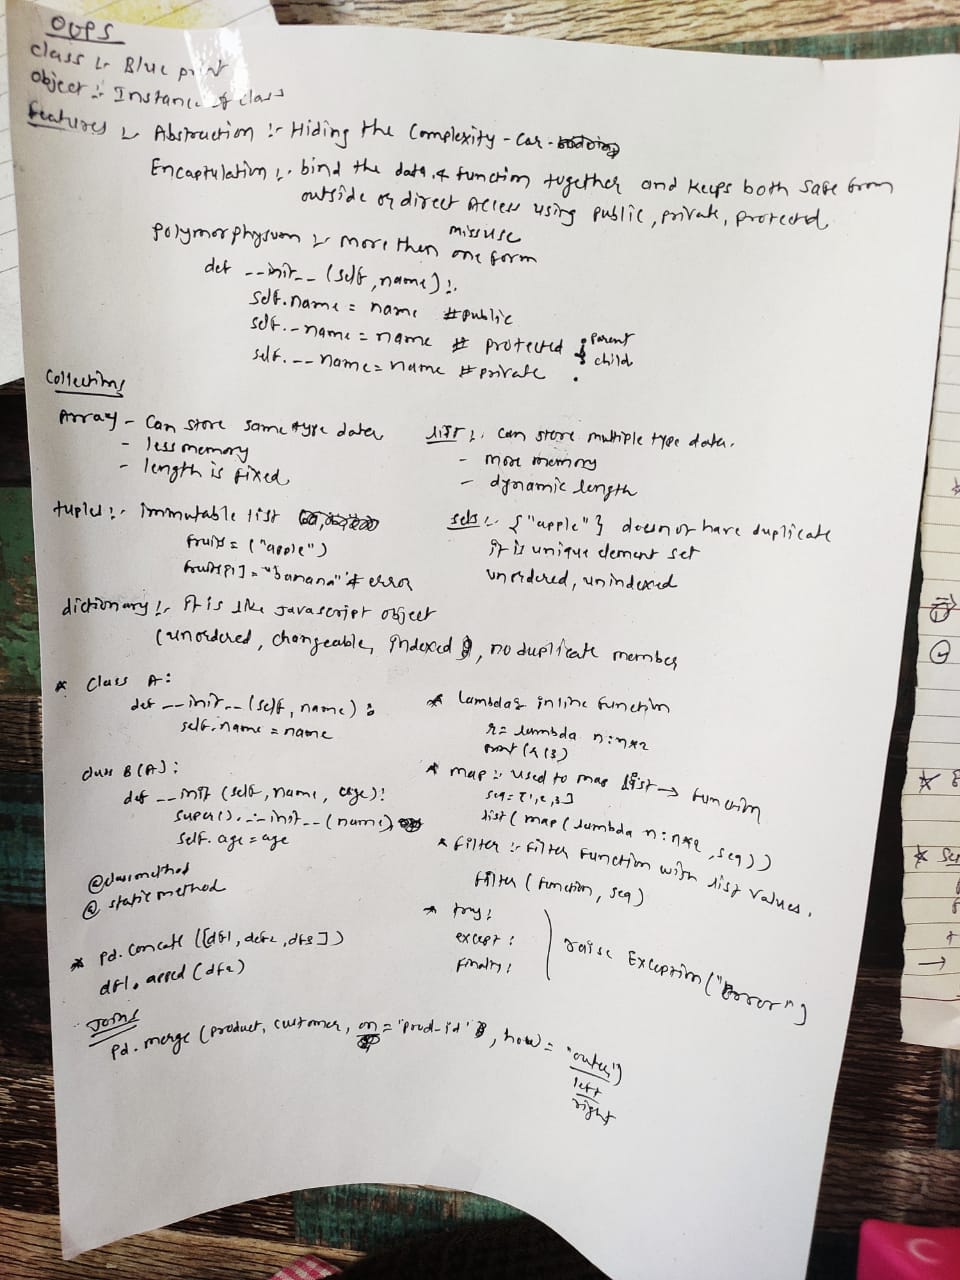 OOPS
class :- Blue print
Object :- Instance of class
Features :- Abstraction :- Hiding the Complexity - Car -
Encaptulation :- bind the data & function together and keeps both safe from
outside or direct Access using public, private, protected
missuse
Polymorphysum :- more then one form
def __init__ (self, name) :
self.name = name #public
self._name = name # protected parent
child
self.__name = name #private
Collections
Array - Can store same type data
- less memory
- length is fixed
list :- can store multiple type data.
- more memory
- dynamic length
tuples :- immutable list
fruits = ("apple")
fruits[1] = "banana" # error
sets :- {"apple"} doesnot have duplicate
it is unique element set
unordered, unindexed
dictionary :- It is like Javascript object
(unordered, changeable, indexed, no duplicate member
* Class A:
def __init__ (self, name) :
self.name = name
class B(A) :
def __init (self, name, age) :
super().__init__ (name)
self.age = age
@classmethod
@ static method
* pd. concate ([df1, df2, df3])
df1. apped (df2)
* lambda inline function
r = lambda n : n*2
print (r(3)
* map :- used to map list → function
seq = [1,2,3]
list ( map ( lambda n : n*2 , seq ) )
* filter :- filter function with list values.
filter ( function, seq )
* try :
except :
finally :
raise Exception ("Error")
Joins
pd. merge (product, customer, on = 'prod_id', how = "outer")
left
right